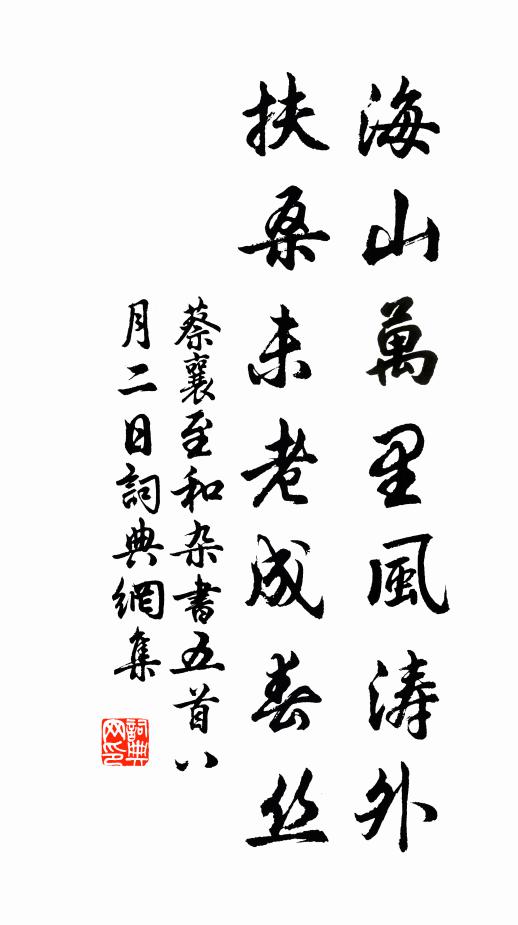 海山萬里風涛外
扶桑未老成春丝
蔡襄至和杂書五首八
月二日詞典網集
詞典
网印